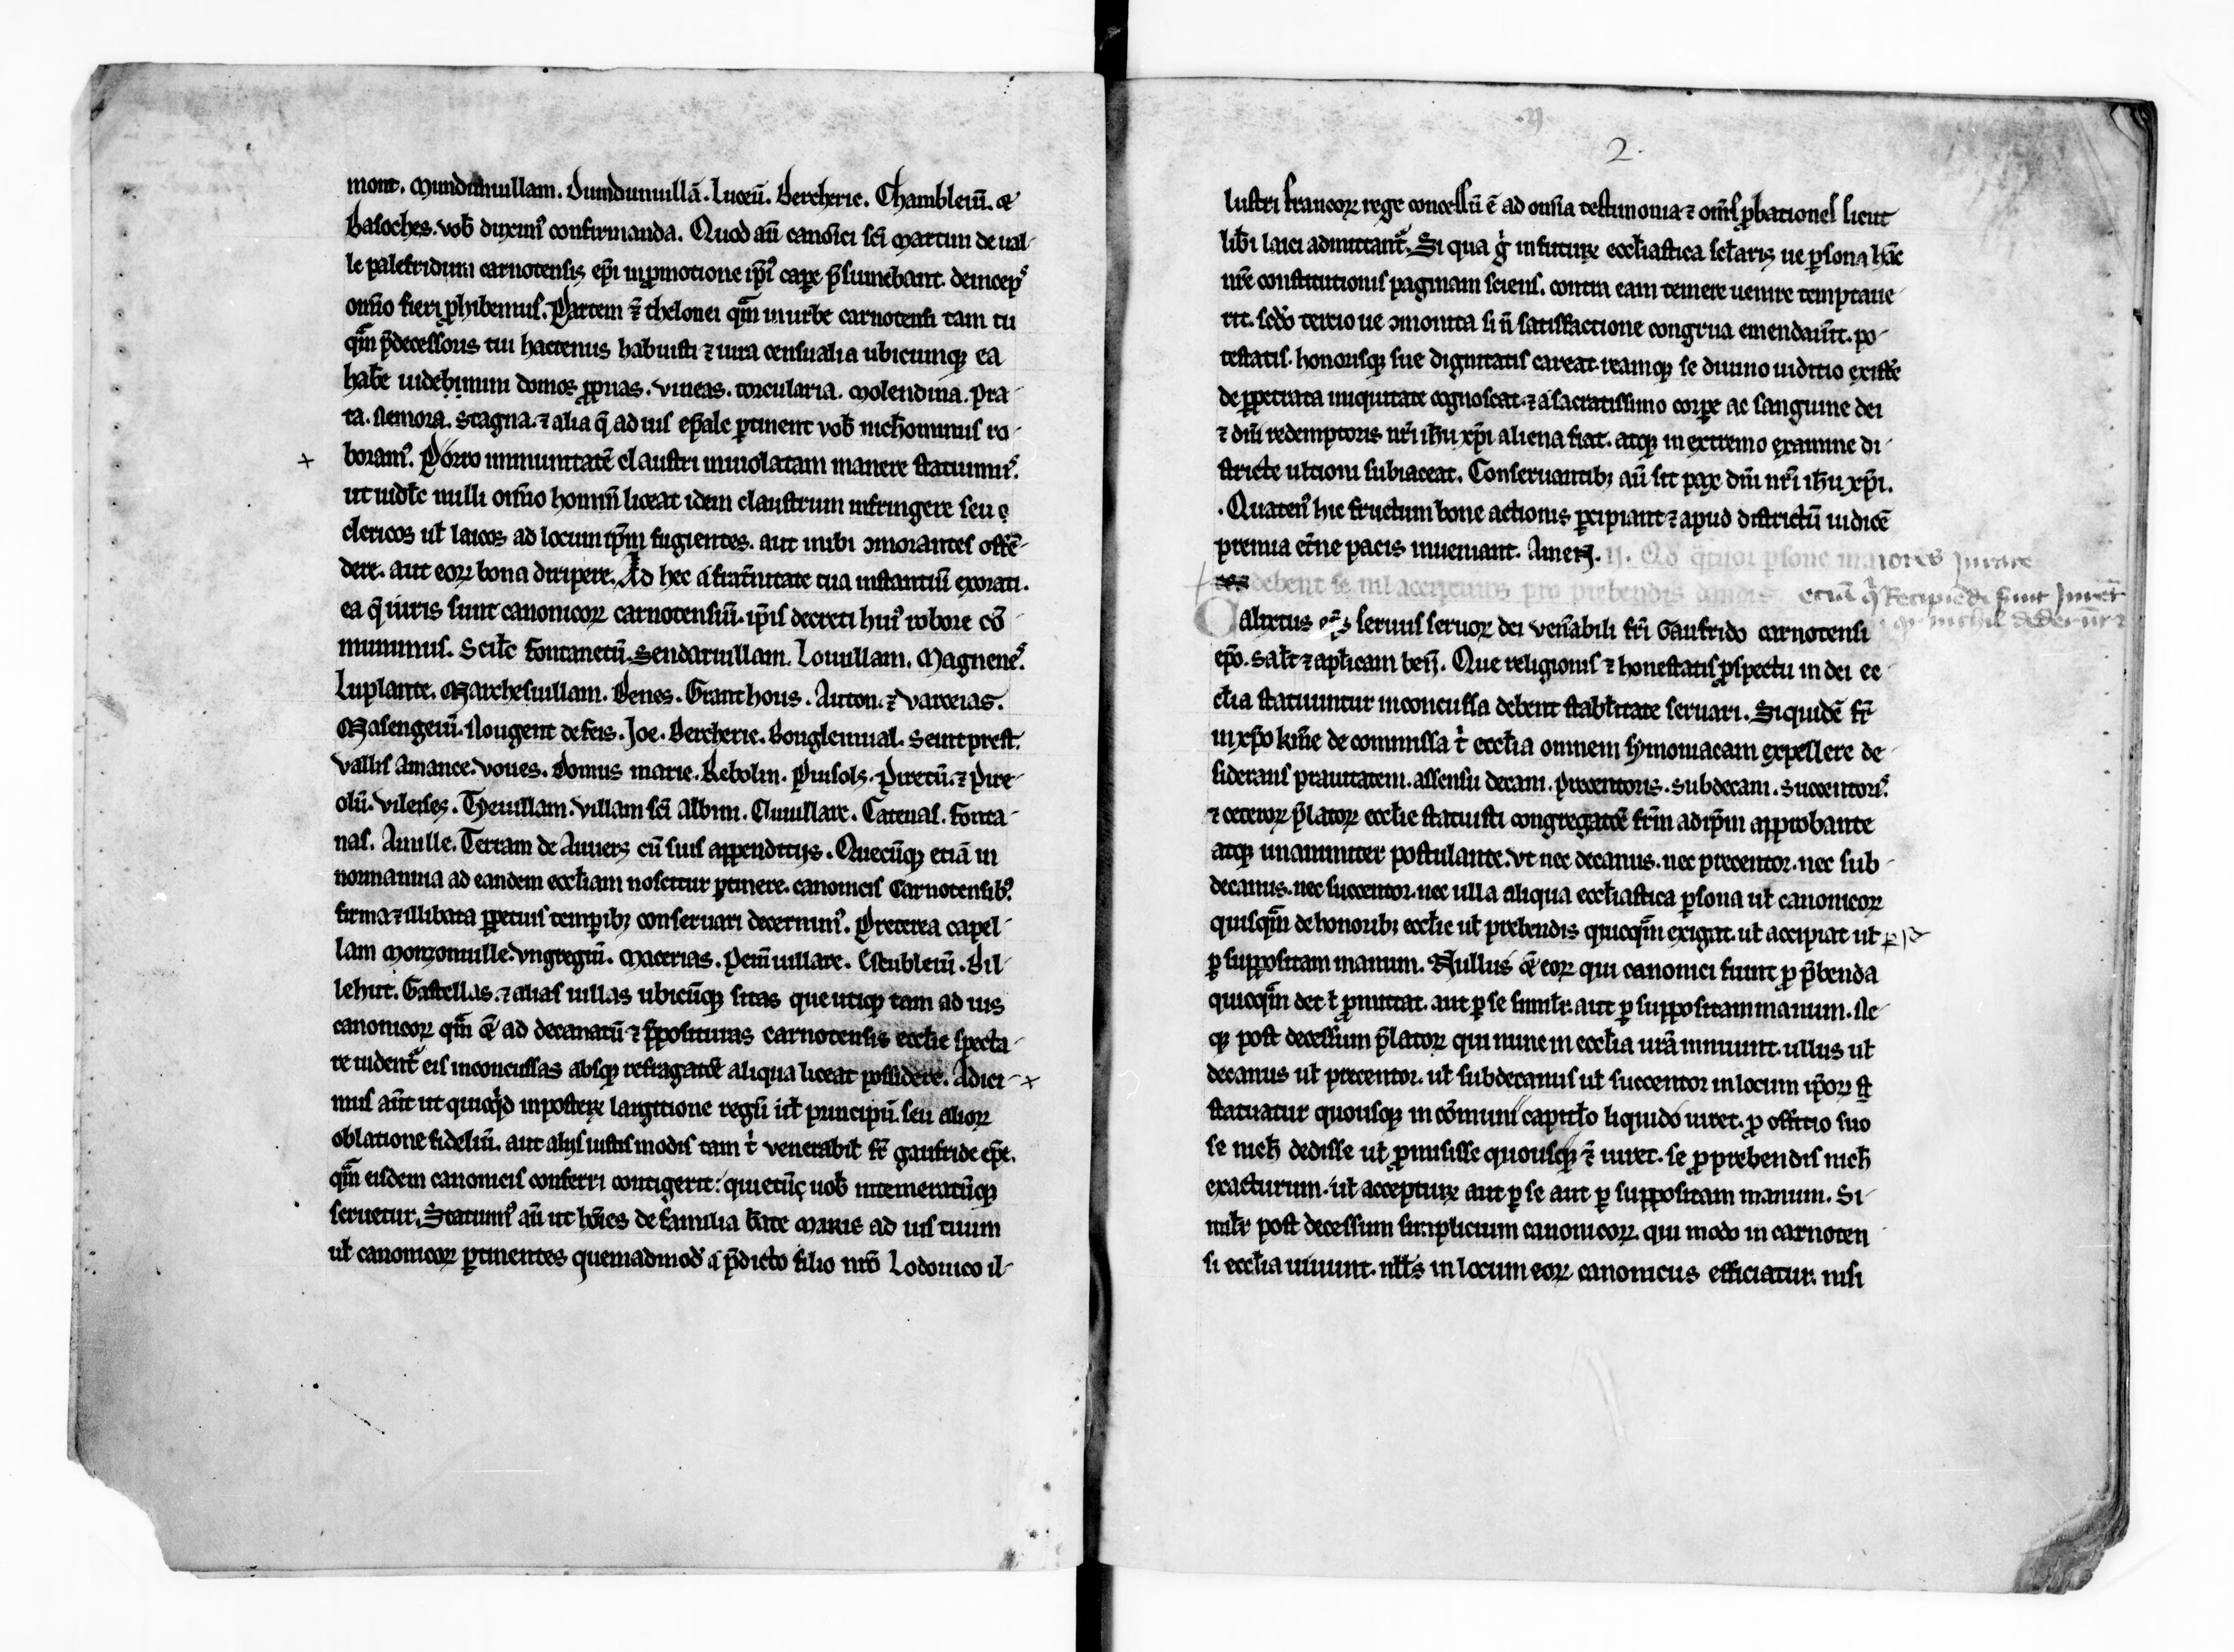 mont. Mundumuillam. Dundumuillā. Luceū. Bercherie. Chambleiū. &
Basoches. vob duxim⁹ confirmanda. Quod aū canoīci sc̄i Martini de ual-
le palefridum carnotensis ep̄i in p̱motione ip̄i⁹ cape p̄sumebant. deincep̄s
om̄io fieri phibemus. Partem ⁊ thelonei qm̄ in urbe carnotensi tam tu
qm̄ p̄decessores tui hactenus habuisti ⁊ iura censualia ubicunqꝫ ea
habe uidebimini domos ꝓprias. vineas. torcularia. Molendina. Pra-
ta. Nemora. Stagna. ⁊ alia q̄ ad ius ep̄ale ꝑtinent vob nichominus ro-
boram⁹. Porro immunitatē claustri inuiolatam manere statuimus.
ut uidꝉc nulli om̄io homin̄ liceat idem claustrum infringere seu
clericos uꝉ laicos ad locum ip̄m fugientes. aut inibi ɔmorantes offē-
dere. aut eoꝝ bona diripere. Ad hec a frat̄nitate tua instantiū exorati.
ea q̄ iuris sunt canonicoꝝ carnotensiū. ip̄is decreti hui⁹ robore cō
munimus. Sciꝉc fontanetū. Sendaruillam. Louillam. Magnene⁹.
Luplante. Marchesuillam. Benes. Granthous. Auton. ⁊ varceias.
Masengeiū. Nougent de feis. Joe. Bercherie. Bouglenual. Seintprest.
Vallis Amance. Voues. Domus marie. Rebolin. Puisols. Piretū. ⁊ Pire-
olū. Vileises. Theuillam. Villam sc̄i Albini. Cluuillare. Catenas. Fonta-
nas. Anille. Terram de Auuers cū suis appenditijs. Quecūqꝫ etiā in
normannia ad eandem eccꝉiam noscitur ꝑtinere. canonicis Carnotensib⁹.
firma ⁊ illibata ꝑpetuis tempib⁊ conseruari decernim⁹. Preterea capel-
lam Monzonuille. Vngregiū. Macerias. Pem̄uillare. Estubleiū. Bil-
lehut. Gastellas. ⁊ alias uillas ubicūqꝫ sitas que utiqꝫ tam ad ius
canonicoꝝ qm̄ & ad decanatū ⁊ p̄posituras carnotensis eccꝉie specta-
re uident̄ eis inconcussas absqꝫ refragatōe aliqua liceat possidere. Adici-
mus aūt ut quicqd in posteꝝ largitione regū uꝉ principū. seu alioꝝ
oblatione fideliū. aut alijs iustis modis tam t̄ venerabiꝉ fr̄ gaufride ep̄e.
qm̄ eisdem canonicis conferri contigerit: quietū uob intemeratūqꝫ
seruetur. Statuim⁹ aū ut hōies de familia b̄ate Marie ad ius tuum
uꝉ canonicoꝝ ꝑtinentes quemadmod̄ a p̄dicto filio nr̄o Lodouico il-
.ii.
2.
lustri francoꝝ rege concessū ē ad om̄ia testimonia ⁊ om̄s ꝓbationes sicut
lib̄i laici admittant̄. Si qua g̊ in futuꝝ eccꝉiastica secꝉaris ue ꝑsona hāc
nr̄e constitutionis paginam sciens. contra eam temere uenire temptaue-
rit. sc̄do tercio ue ɔmonita si n̄ satisfactione congrua emendauit̄. po-
testatis. honorisqꝫ sue dignitatis careat. reamqꝫ se diuino iuditio existe
de ꝑpetrata iniquitate cognoscat. ⁊ a sacratissimo corpe ac sanguine dei
⁊ dn̄i redemptoris nr̄i ih̄u xp̄i aliena fiat. atqꝫ in extremo examine di-
stricte ultioni subiaceat. Conseruantib⁊ aū sit pax dn̄i nr̄i ih̄u xp̄i.
Quaten⁹ hic fructum bone actionis ꝑcipiant ⁊ apud districtū iudicē
premia et̄ne pacis inueniant. Amen. ij. Qd q̄tuor ꝑsone maiores jurare
debent se nil accepturos pro prebendis dandis etiā q Recipiēdi sunt Jurēt
Calixtus ep̄s seruus seruoꝝ dei ven̄abili fr̄i Gaufrido carnotensi q nichil dederunt
ep̄o. Saꝉt ⁊ apꝉicam ben̄. Que religionis ⁊ honestatis ꝓspectu in dei ec
cꝉia statuuntur inconcussa debent stabꝉitate seruari. Siquidē fr̄
in xp̄o kme de commissa t̄ eccꝉia omnem symoniacam expellere de-
siderans prauitatem. assensu decani. Precentoris. Subdecani. Succentoris.
⁊ ceteroꝝ p̄latoꝝ eccꝉie statuisti congregatōe fr̄m ad ip̄m approbante
atqꝫ unanimiter postulante. Vt nec decanus. nec precentor. nec sub-
decanus. nec succentor. nec ulla aliqua eccꝉiastica ꝑsona uꝉ canonicoꝝ
quisqm̄ de honorib⁊ eccꝉie uꝉ prebendis quicqm̄ exigat. uꝉ accipiat uꝉ ꝑ se
ꝑ suppositam manum. Nullus & eoꝝ qui canonici fiunt ꝓ p̄benda
quicqm̄ det ꝉ ꝓmittat. aut ꝑ se simiꝉr. aut ꝑ suppositam manum. Ne-
qꝫ post decessum p̄latoꝝ qui nunc in eccꝉia ur̄a uiuunt. ullus uꝉ
decanus uꝉ precentor. uꝉ subdecanus uꝉ succentor in locum ip̄oꝝ
statuatur quousqꝫ in cōmuni capituꝉo liquido iuret. ꝓ officio suo
se nich̄ dedisse uꝉ ꝓmisisse quousqꝫ ⁊ iuret. se ꝓ prebendis nich̄
exacturum. uꝉ acceptuꝝ aut ꝑ se aut ꝑ suppositam manum. Si-
miꝉr post decessum simplicium canonicoꝝ. qui modo in carnoten
si eccꝉia uiuunt. nꝉꝉs in locum eoꝝ canonicus efficiatur. nisi